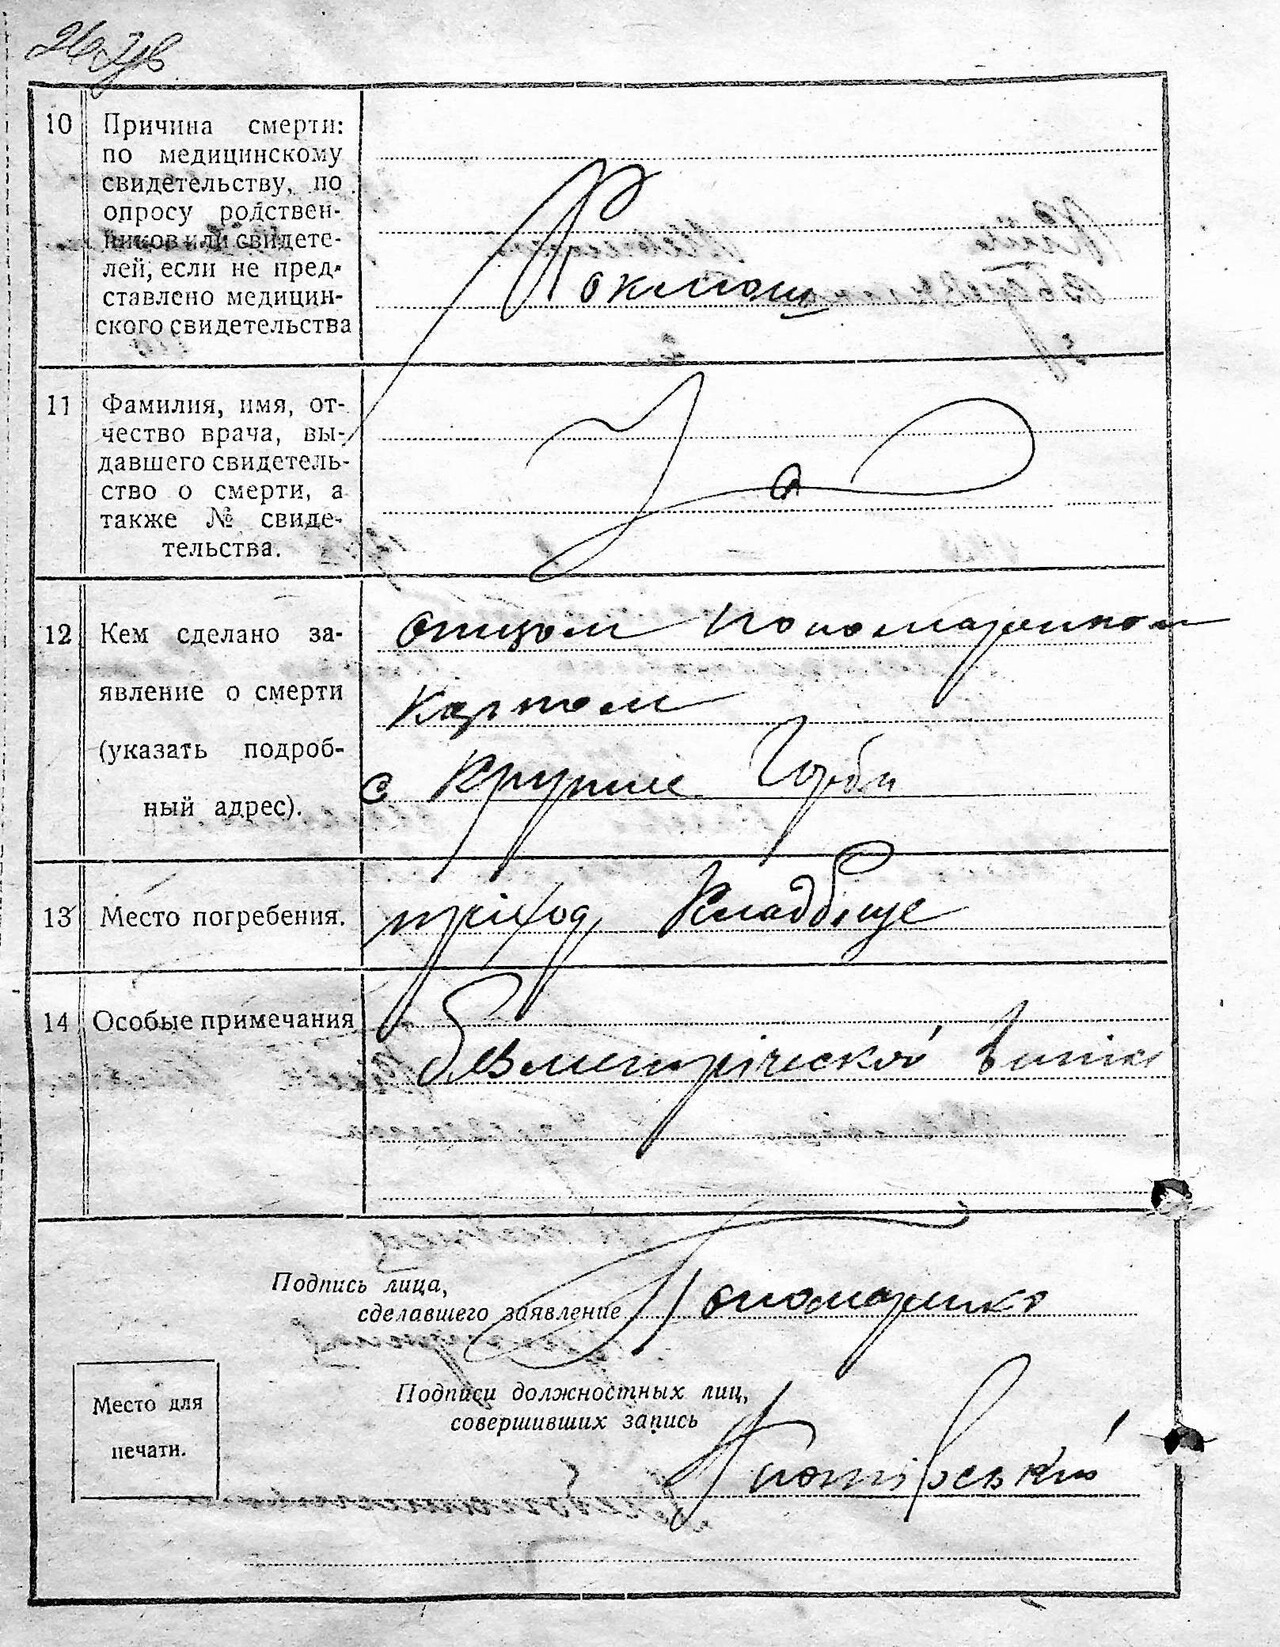 10 Причина смерти:
по медицинскому
свидетельству, по
опросу родствен-
ников или свидете-
лей, если не пред-
ставлено медицин-
ского свидетельства
Коклюш
11 Фамилия, имя, от-
чество врача, вы-
давшего свидетель-
ство о смерти, а
также № свиде-
тельства.
12 Кем сделано за-
явление о смерти
(указать подроб-
ный адрес).
отцом Пономаренком
Карпом
с Крутые Горби
13 Место погребения.
приход Кладбіще
14 Особые примечания
без метріческой випіс
Подпись лица,
сделавшего заявление Пономаренко
Подписи должностных лиц,
совершивших запись
Место для
печати.